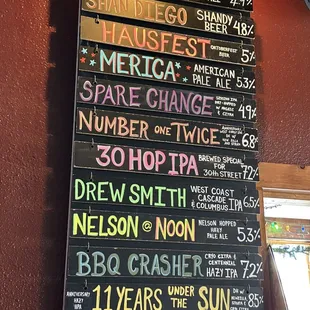 4.7%
SHAN DIEGO SHANDY BEER 4.8%
HAUSFEST OKTOBERFEST BEER 5%
'MERICA AMERICAN PALE ALE 5.3%
SPARE CHANGE SESSION IPA 4.9%
NUMBER ONE TWICE ANNIVERSARY 6.8%
30 HOP IPA BREWED SPECIAL FOR 30TH STREET! 7.2%
DREW SMITH WEST COAST CASCADE & COLUMBUS IPA 6.5%
NELSON @ NOON NELSON HOPPED HAZY PALE ALE 5.3%
BBQ CRASHER CRYO CITRA & CENTENNIAL HAZY IPA 7.2%
ANNIVERSARY HAZY IPA 11 YEARS UNDER THE SUN 8.5%